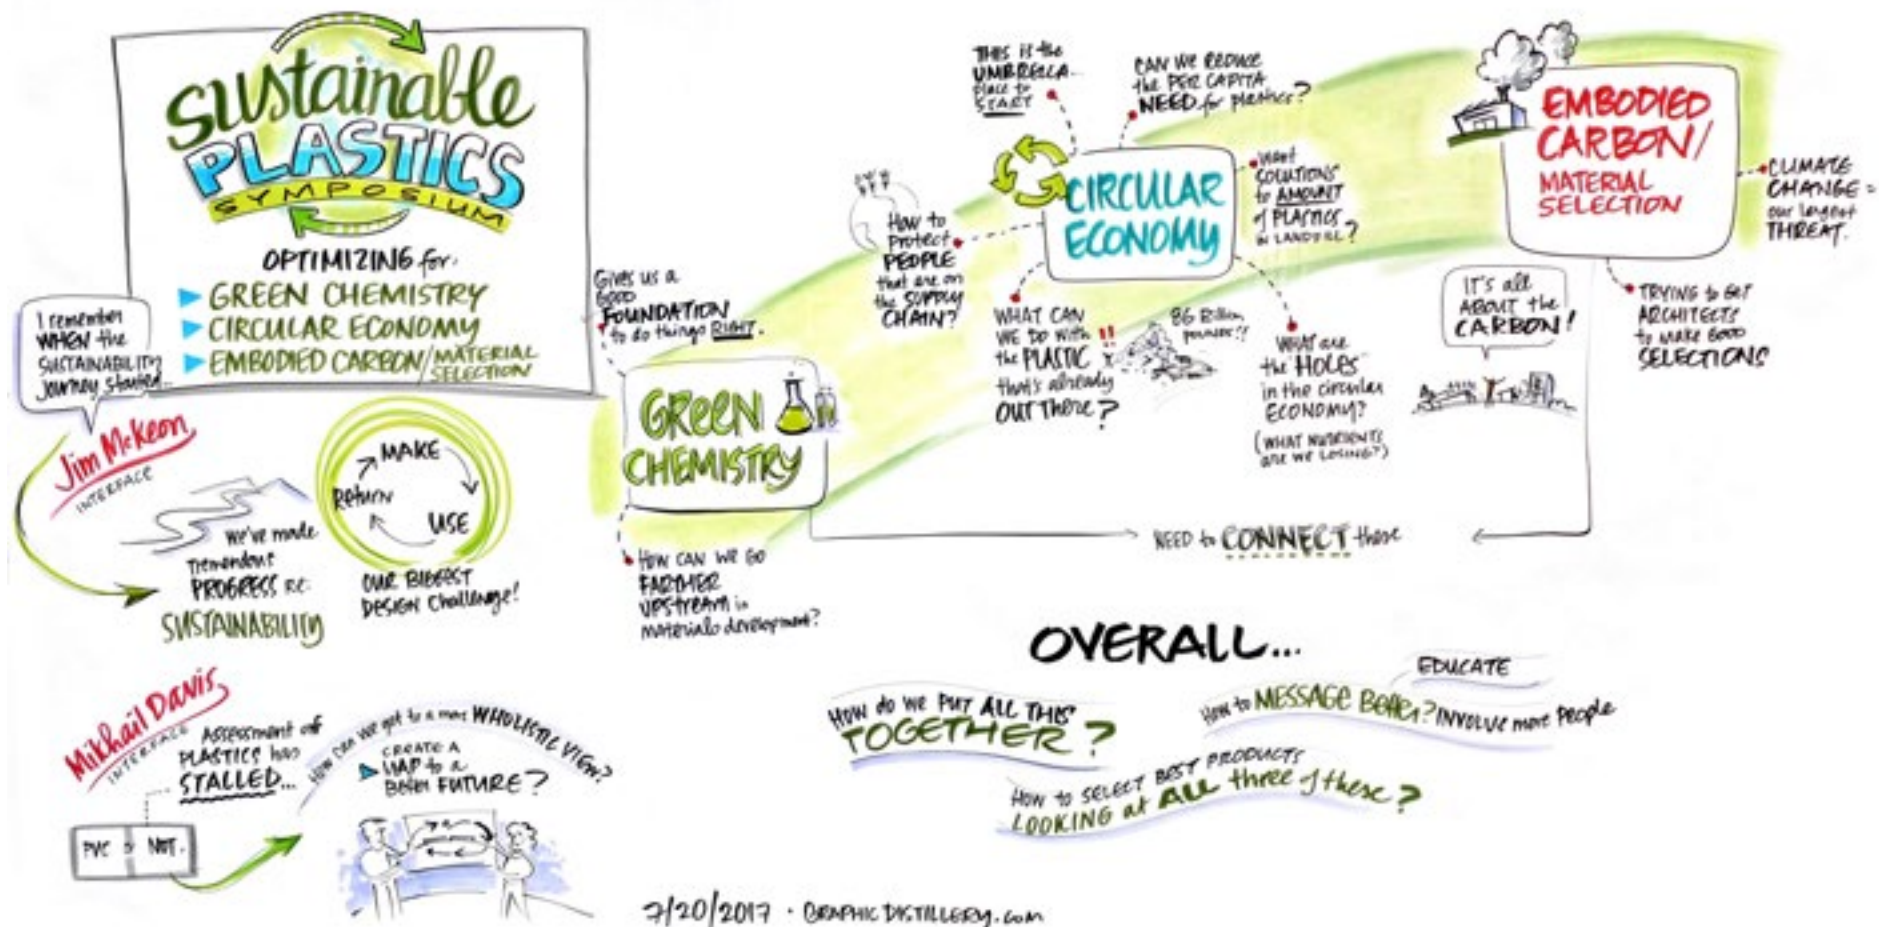 Sustainable
PLASTICS
SYMPOSIUM
OPTIMIZING for:
GREEN CHEMISTRY
CIRCULAR ECONOMY
EMBODIED CARBON/MATERIAL
SELECTION
I remember
WHEN the
SUSTAINABILITY
Journey started...
Jim McKeon
INTERFACE
We've made
Tremendous
PROGRESS re:
SUSTAINABILITY
MAKE
USE
Return
OUR BIGGEST
DESIGN Challenge!
Mikhail Davis
INTERFACE
Assessment of
PLASTICS has
STALLED...
PVC or NOT.
How can we get to a more WHOLISTIC VIEW?
CREATE A
MAP to a
Better FUTURE?
Gives us a
GOOD
FOUNDATION
to do things RIGHT.
GREEN
CHEMISTRY
HOW CAN WE GO
FARTHER
UPSTREAM in
materials development?
THIS is the
UMBRELLA
place to
START
CAN WE REDUCE
the PER CAPITA
NEED for plastics?
CIRCULAR
ECONOMY
Want
SOLUTIONS
to AMOUNT
of PLASTICS
in LANDFILL?
How to
Protect
PEOPLE
that are on
the SUPPLY
CHAIN?
WHAT CAN
WE DO WITH !!
the PLASTIC
that's already
OUT There?
86 Billion
pounds!!
WHAT ARE
the HOLES
in the circular
ECONOMY?
(WHAT NUTRIENTS
are we LOSING?)
EMBODIED
CARBON/
MATERIAL
SELECTION
CLIMATE
CHANGE =
our largest
THREAT.
IT'S all
ABOUT the
CARBON!
TRYING to GET
ARCHITECTS
to make GOOD
SELECTIONS
NEED to CONNECT these
OVERALL...
HOW do WE PUT ALL THIS
TOGETHER?
EDUCATE
How to MESSAGE Better? INVOLVE more People
HOW to SELECT BEST PRODUCTS
LOOKING at ALL three of these?
7/20/2017 · GRAPHICDISTILLERY.com